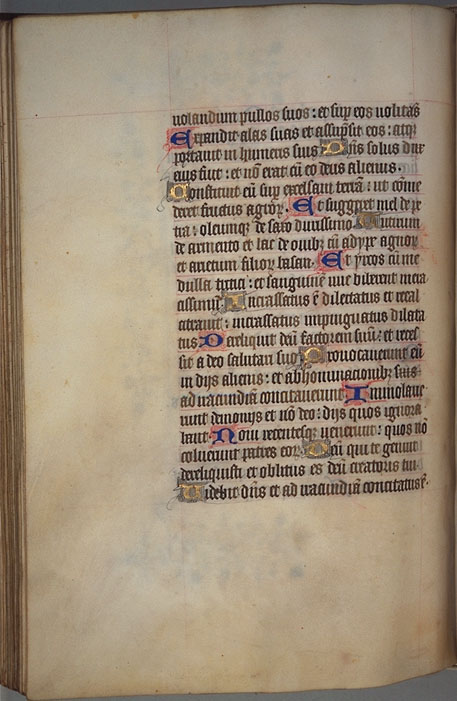 uolandum pullos suos : et sup eos uolitās
Expandit alas suas et assūpsit eos : atqꝫ
portauit in humeris suis Dn̄s solus dux
eius fuit : et nō erat cū eo deus alienus.
Constituit eū sup excelsam terrā : ut come
deret fructus agroꝝ. Et suggeret mel de pe
tra : oleumqꝫ de saxo durissimo. Butirum
de armento et lac de ouibꝫ cū adype agnoꝝ
et arietum filioꝝ basan. Et yrcos cū me
dulla tritici : et sanguinē uue biberent mera
cissimū. Incrassatus ē dilectatus et recal
citrauit : incrassatus inpinguatus dilata
tus Dereliquit deū factorem suū : et reces
sit a deo salutari suo Prouocauerunt eū
in dijs alienis : et abhominacionibꝫ suis
ad iracundiā concitauerunt Immolaue
runt demonijs et nō deo : dijs quos ignora
bant Noui recentesqꝫ uenerunt : quos nō
coluerunt patres eoꝝ Deū qui te genuit
dereliquisti et oblitus es deū creatoris tui.
Uidebit dn̄s et ad iracundiā concitatus ē.